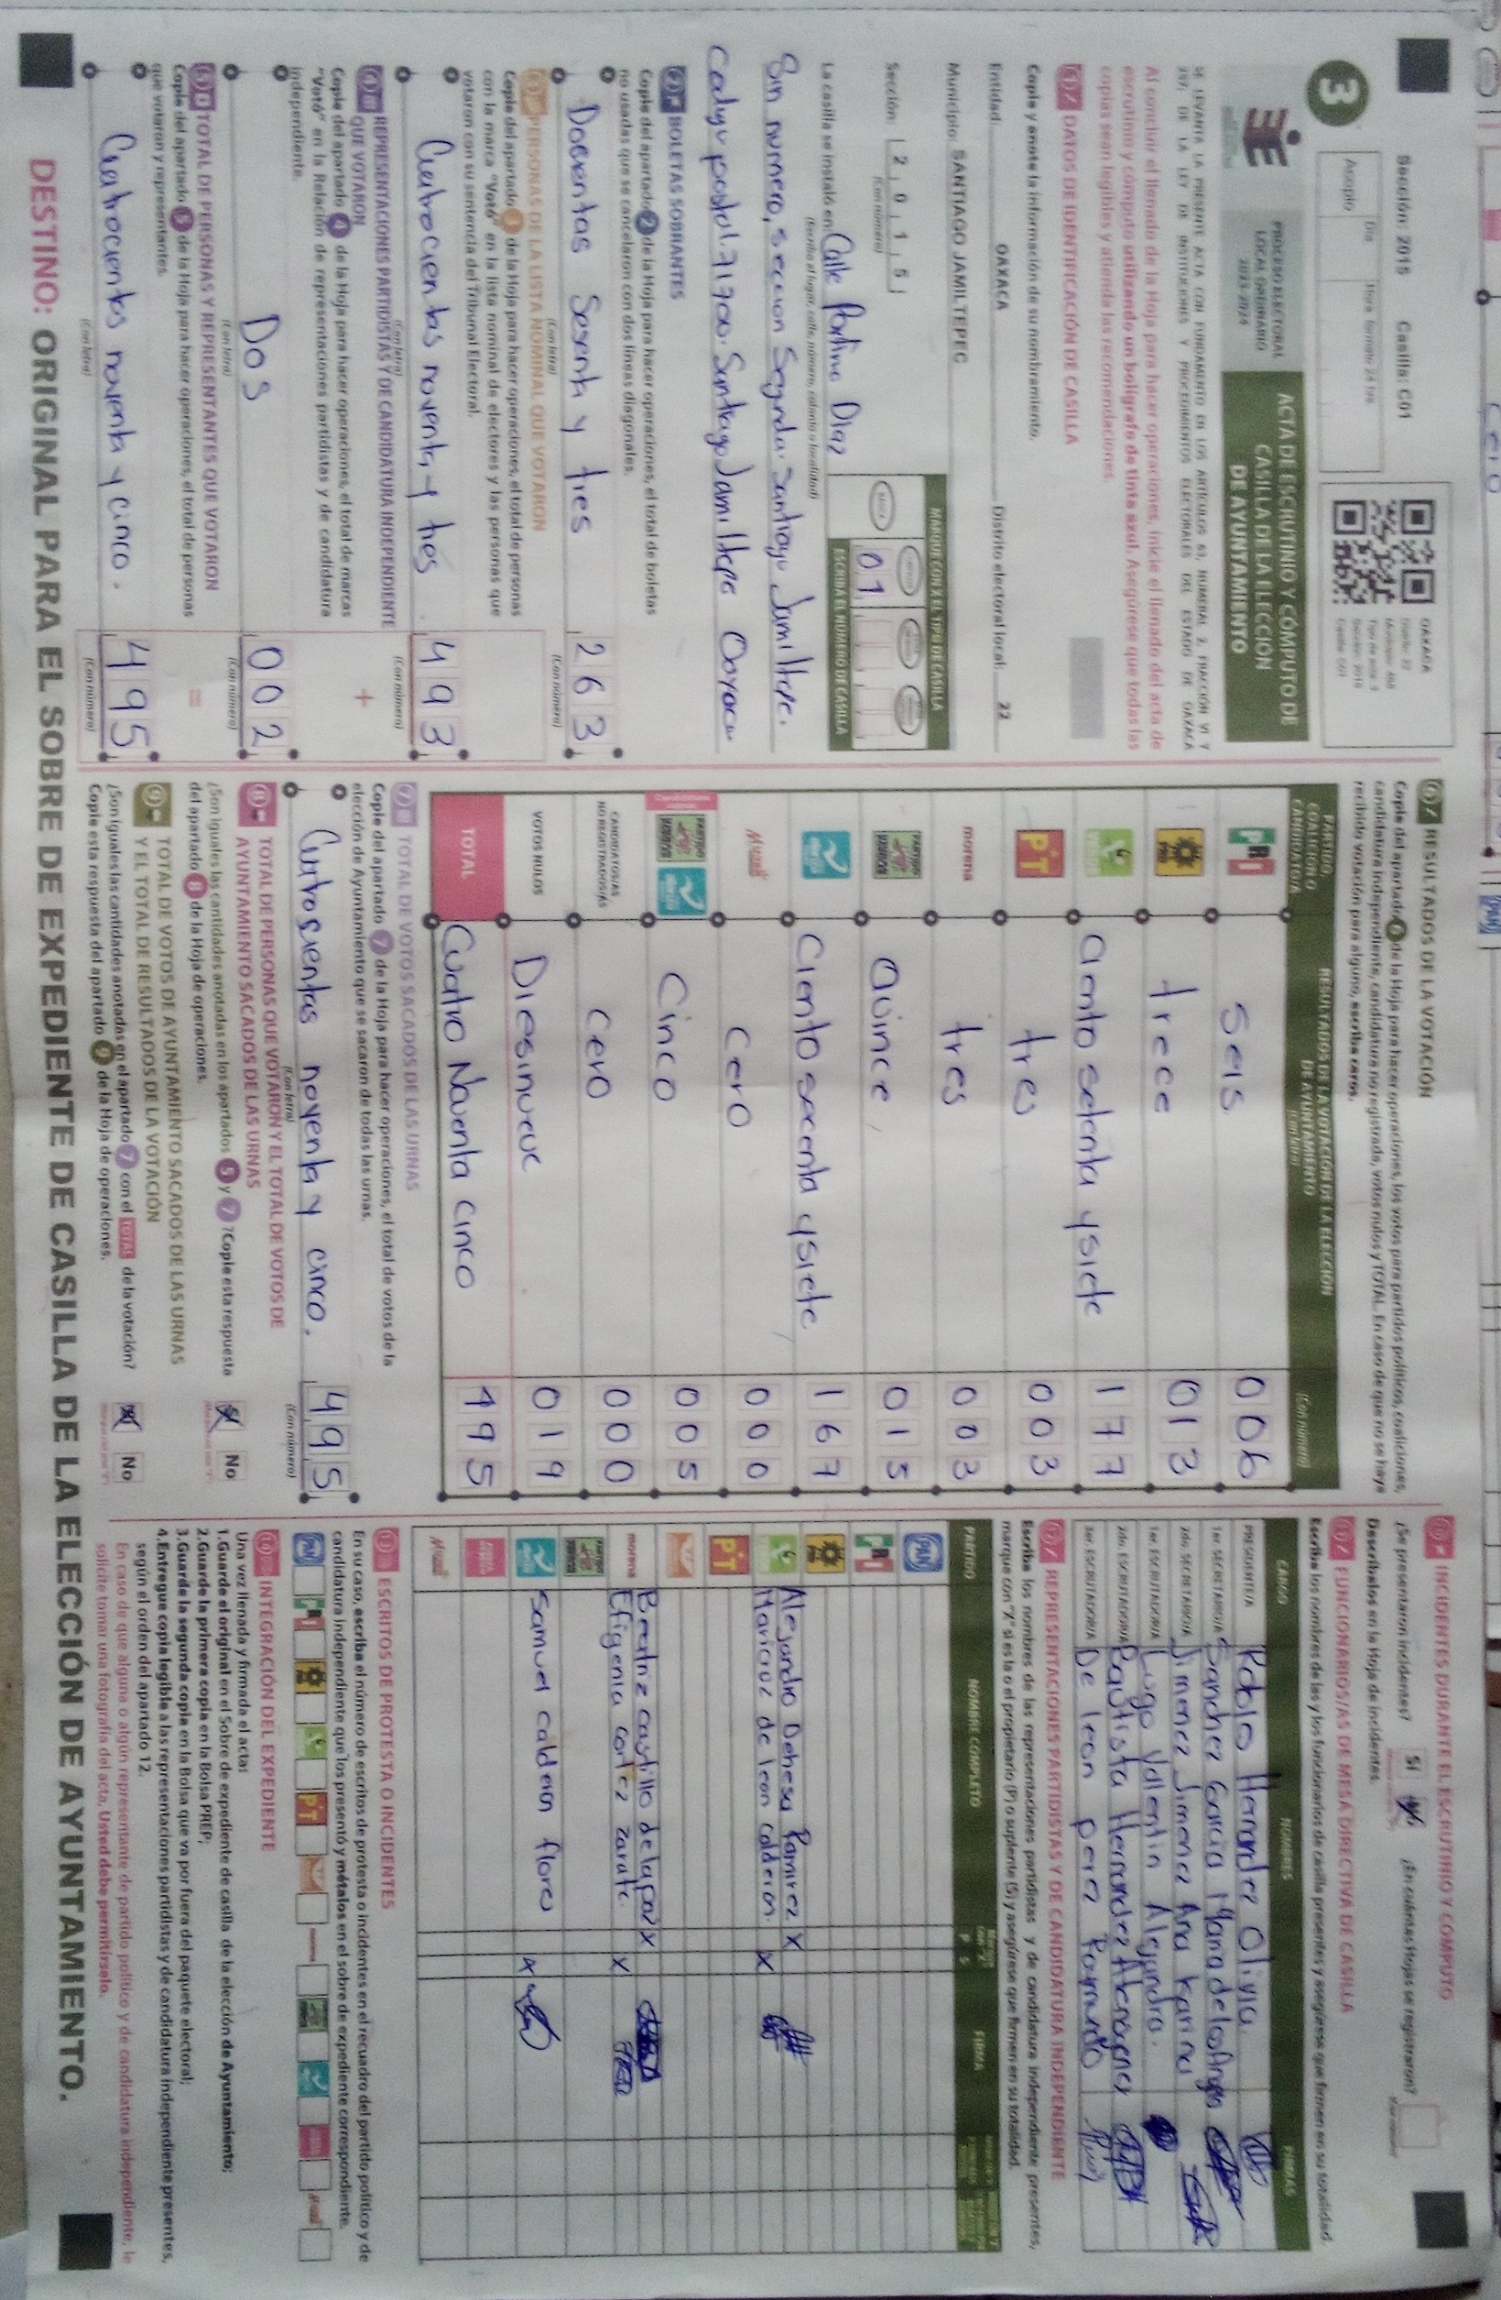 Sección: 2015 Casilla: C01
3
Acopio
Día
Hora formato 24 hrs
OAXACA
Distrito: 22
Municipio: 468
Tipo de acta: 3
Sección: 2015
Casilla: C01
PROCESO ELECTORAL
LOCAL ORDINARIO
2023-2024
ACTA DE ESCRUTINIO Y CÓMPUTO DE
CASILLA DE LA ELECCIÓN
DE AYUNTAMIENTO
Al concluir el llenado de la Hoja para hacer operaciones, inicie el llenado del acta de
escrutinio y cómputo utilizando un bolígrafo de tinta azul. Asegúrese que todas las
copias sean legibles y atienda las recomendaciones.
1 DATOS DE IDENTIFICACIÓN DE CASILLA
Copie y anote la información de su nombramiento.
Entidad: OAXACA Distrito electoral local: 22
Municipio: SANTIAGO JAMILTEPEC
Sección: 2 0 1 5
(Con número)
MARQUE CON X EL TIPO DE CASILLA
ESCRIBA EL NÚMERO DE CASILLA
01
La casilla se instaló en: Calle Porfirio Diaz
(Escriba el lugar, calle, número, colonia o localidad)
Sin numero, seccion Segunda. Santiago Jamiltepe.
Codigo postal. 71700. Santiago Jamiltepec Oaxaca
2 BOLETAS SOBRANTES
Copie del apartado 2 de la Hoja para hacer operaciones, el total de boletas
no usadas que se cancelaron con dos líneas diagonales.
Docientas Sesenta y tres 263
(Con letra) (Con número)
3 PERSONAS DE LA LISTA NOMINAL QUE VOTARON
Copie del apartado 3 de la Hoja para hacer operaciones, el total de personas
con la marca "Votó" en la lista nominal de electores y las personas que
votaron con su sentencia del Tribunal Electoral.
Cuatrocientas noventa y tres. 493
(Con letra) (Con número)
4 REPRESENTACIONES PARTIDISTAS Y DE CANDIDATURA INDEPENDIENTE
QUE VOTARON
Copie del apartado 4 de la Hoja para hacer operaciones, el total de marcas
"Votó" en la Relación de representaciones partidistas y de candidatura
independiente.
+
Dos 002
(Con letra) (Con número)
5 TOTAL DE PERSONAS Y REPRESENTANTES QUE VOTARON
Copie del apartado 5 de la Hoja para hacer operaciones, el total de personas
que votaron y representantes.
=
Cuatrocientos noventa y cinco. 495
(Con letra) (Con número)
6 RESULTADOS DE LA VOTACIÓN
Copie del apartado 6 de la Hoja para hacer operaciones, los votos para partidos políticos, coaliciones,
candidatura independiente, candidatura no registrada, votos nulos y TOTAL. En caso de que no se haya
recibido votación para alguno, escriba ceros.
PARTIDO,
COALICIÓN O
CANDIDATO/A
RESULTADOS DE LA VOTACIÓN DE LA ELECCIÓN
DE AYUNTAMIENTO
(Con letra)
(Con número)
PRI Seis. 006
PRD trece 013
ciento setenta y siete 177
PT tres 003
morena tres 003
PARTIDO VERDE Quince 015
Ciento secenta y siete 167
Cero 000
PARTIDO VERDE Cinco 005
CANDIDATOS/AS
NO REGISTRADOS/AS
cero 000
VOTOS NULOS Diesinueve 019
TOTAL Cuatro Noventa cinco 495
7 TOTAL DE VOTOS SACADOS DE LAS URNAS
Copie del apartado 7 de la Hoja para hacer operaciones, el total de votos de la
elección de Ayuntamiento que se sacaron de todas las urnas.
Cuatrosientas noventa y cinco. 495
(Con letra) (Con número)
8 TOTAL DE PERSONAS QUE VOTARON Y EL TOTAL DE VOTOS DE
AYUNTAMIENTO SACADOS DE LAS URNAS
¿Son iguales las cantidades anotadas en los apartados 5 y 7? Copie esta respuesta
del apartado 8 de la Hoja de operaciones.
Sí No
9 TOTAL DE VOTOS DE AYUNTAMIENTO SACADOS DE LAS URNAS
Y EL TOTAL DE RESULTADOS DE LA VOTACIÓN
¿Son iguales las cantidades anotadas en el apartado 7 con el TOTAL de la votación?
Copie esta respuesta del apartado 9 de la Hoja de operaciones.
Sí No
10 INCIDENTES DURANTE EL ESCRUTINIO Y CÓMPUTO
¿Se presentaron incidentes? Sí No ¿En cuántas Hojas se registraron?
Descríbalos en la Hoja de incidentes.
11 FUNCIONARIOS/AS DE MESA DIRECTIVA DE CASILLA
Escriba los nombres de las y los funcionarios de casilla presentes y asegúrese que firmen en su totalidad.
CARGO NOMBRES FIRMAS
PRESIDENTE/A Roblo Hernandez Olivia.
1er. SECRETARIO/A Sanchez Garcia Maria de los Angeles
2do. SECRETARIO/A Jimenez Jimenez Ana Karina
1er. ESCRUTADOR/A Lugo Valentin Alejandra.
2do. ESCRUTADOR/A Bautista Hernandez Atenogenes
3er. ESCRUTADOR/A De leon perez Raymundo
12 REPRESENTACIONES PARTIDISTAS Y DE CANDIDATURA INDEPENDIENTE
Escriba los nombres de las representaciones partidistas y de candidatura independiente presentes,
marque con "X" si es la o el propietario (P) o suplente (S) y asegúrese que firmen en su totalidad.
PARTIDO NOMBRE COMPLETO P S FIRMA
PAN
PRI
PRD
Alejandro Dehesa Ramirez X
Maricruz de leon calderon. X
PT
morena Beatriz castillo de la paz X
Efigenia cortez zarate. X
PARTIDO VERDE
Samuel calderon flores X
13 ESCRITOS DE PROTESTA O INCIDENTES
En su caso, escriba el número de escritos de protesta o incidentes en el recuadro del partido político y de
candidatura independiente que los presentó y métalos en el sobre de expediente correspondiente.
PAN PRI PRD PT morena
14 INTEGRACIÓN DEL EXPEDIENTE
Una vez llenada y firmada el acta:
1.Guarde el original en el Sobre de expediente de casilla de la elección de Ayuntamiento;
2.Guarde la primera copia en la Bolsa PREP;
3.Guarde la segunda copia en la Bolsa que va por fuera del paquete electoral;
4.Entregue copia legible a las representaciones partidistas y de candidatura independiente presentes,
según el orden del apartado 12.
En caso de que alguna o algún representante de partido político y de candidatura independiente, le
solicite tomar una fotografía del acta, Usted debe permitírselo.
DESTINO: ORIGINAL PARA EL SOBRE DE EXPEDIENTE DE CASILLA DE LA ELECCIÓN DE AYUNTAMIENTO.